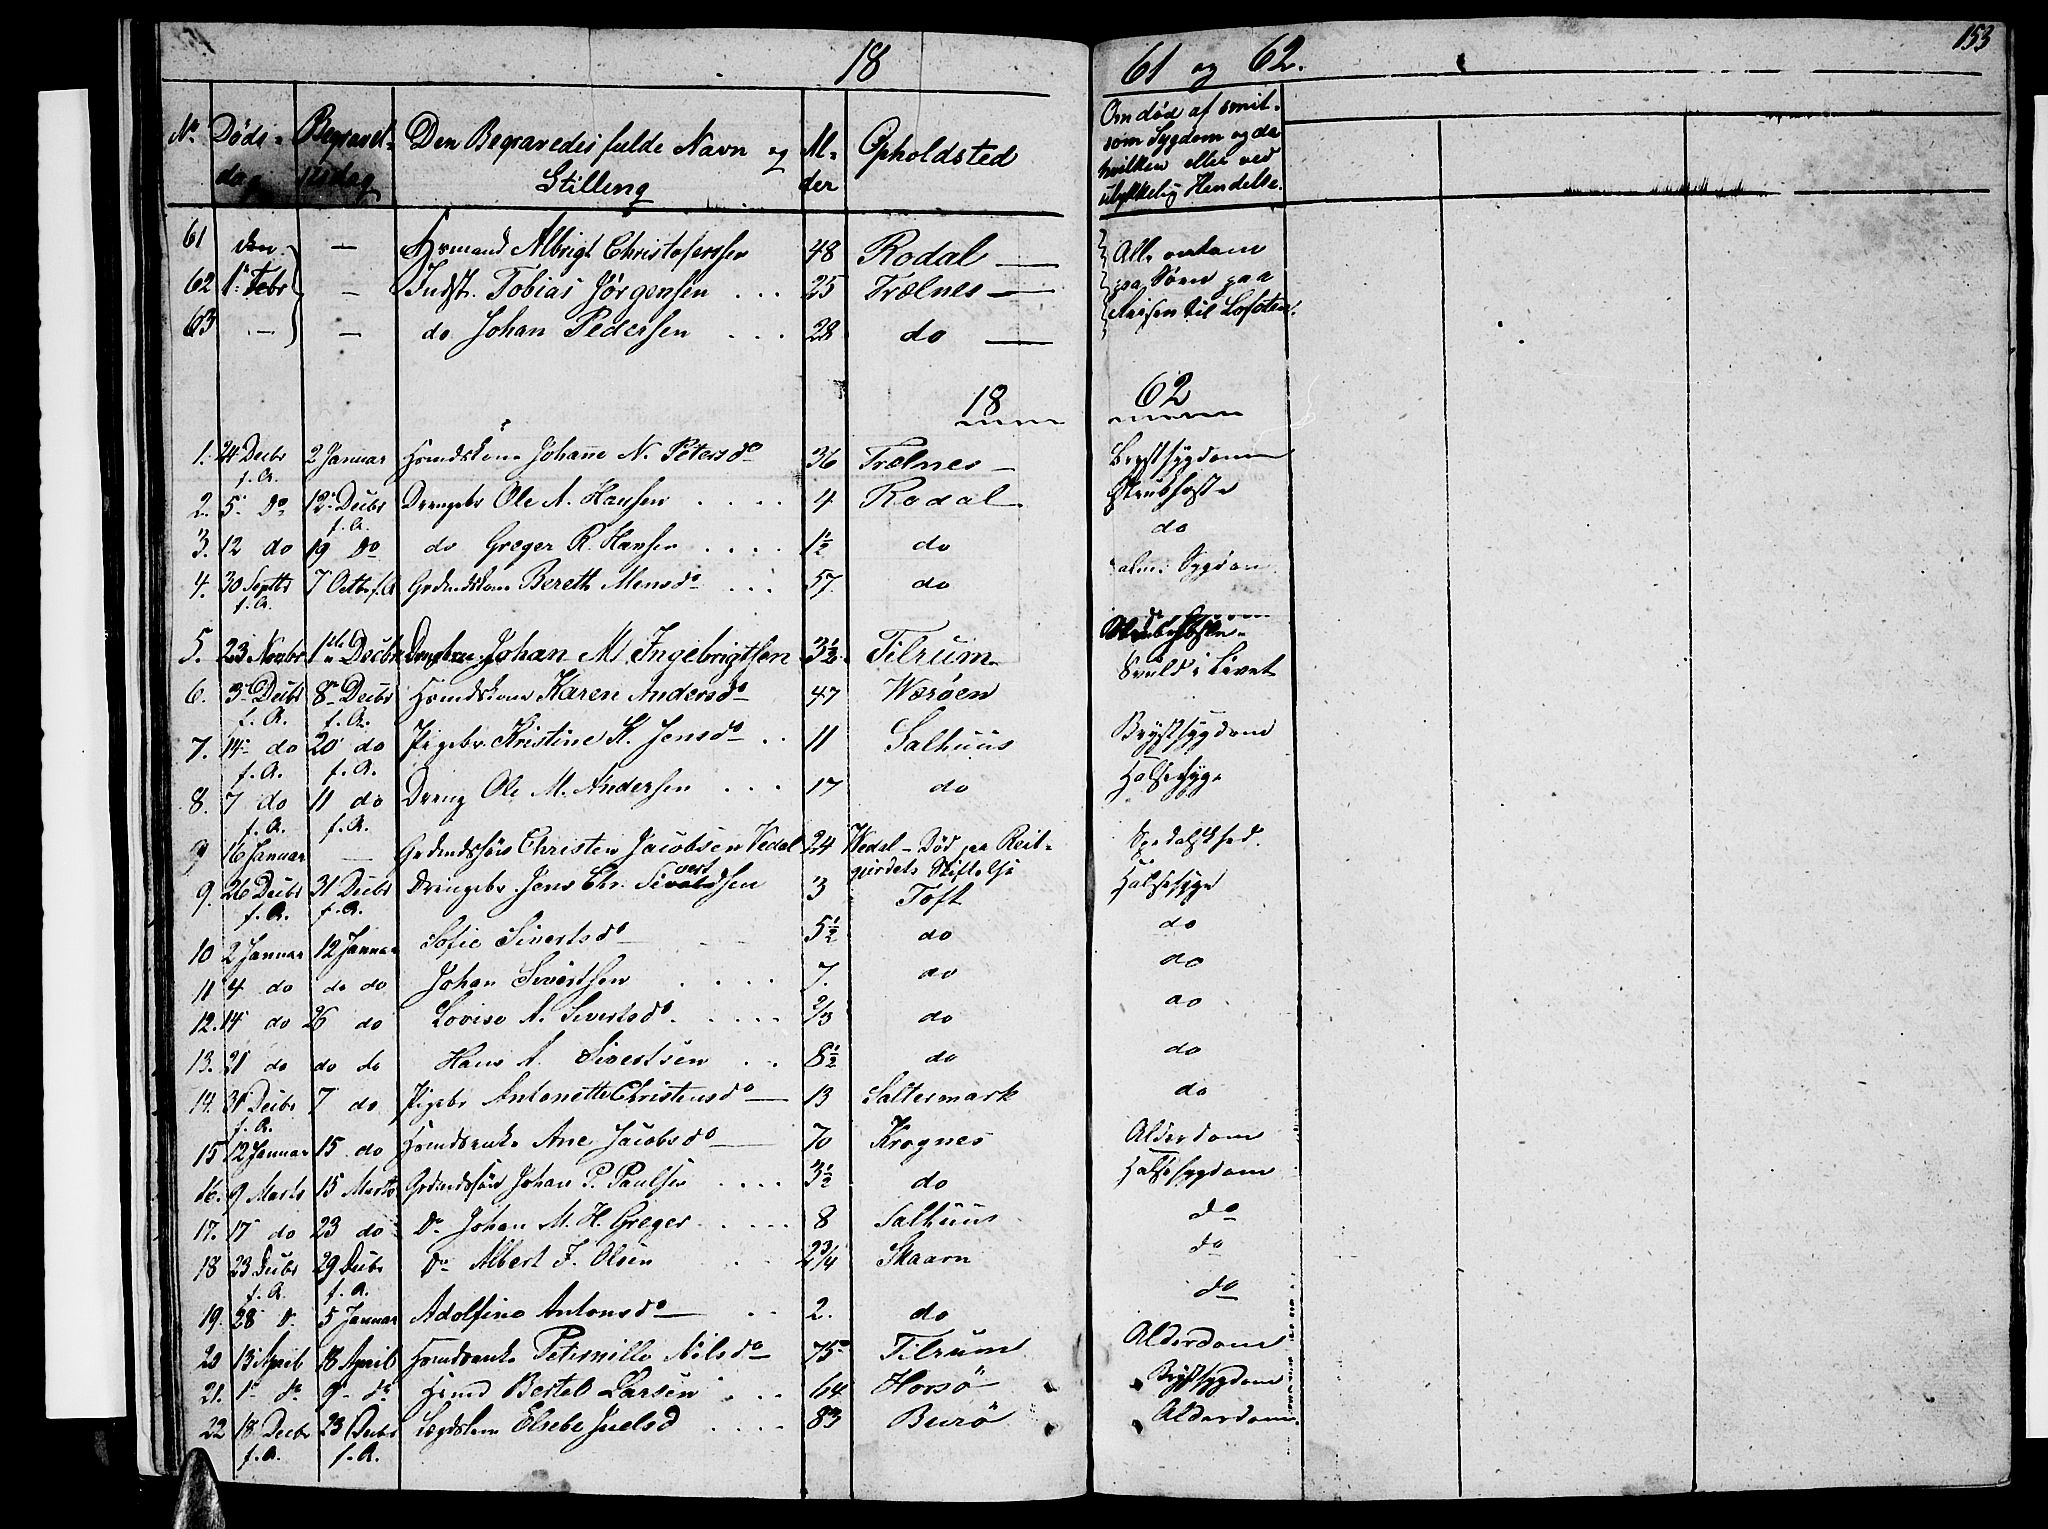 153
18 61 og 62.
No Døds-dag Begravelsesdag Den Begravedes fulde Navn og Stilling Alder Opholdsted Om død af smitsom Sygdom og da hvilken eller ved ulykkelig Hendelse.
61 den — Hrmand Albrigt Christofersen 48 Rodal — Alle omkom
62 1ste Febr — Indst. Tobias Jørgensen . . . 25 Trælnes — paa Søen paa
63 — — do Johan Pedersen . . . 28 do — Reisen til Lofoten.
18 62
1. 24 Decbr f. A. 2 Januar Hmdskone Johanne N. Petersdr 36 Trælnes — Brystsygdom
2. 5 Do 12 Decbr f. A. Drengebr Ole A. Hansen . . . . 4 Rodal Strubhoste
3. 12 do 19 Do do Greger R. Hansen . . . . 1½ do do
4. 30 Septb f. A. 7 Octb f. A Grdmdskone Bereth Monsdr . . . 57. do alm. Sygdom
5. 23 Novbr 1ste Decbr Drengebr Johan M. Ingebrigtsen 3½ Tilrum Strubehoste
6. 3 Decbr f. A. 8 Decbr f. A. Hmdskone Karen Andersdr 47 Wærøen Svuld i Livet
7. 14 do f. A. 20 do f. A. Pigebr Kristine K. Jensdr . . 11 Salhuus Brystsygdom
8. 7 do f. A. 11 do f. A. Dreng Ole M. Andersen . . . 17 do Halsesyge
9 16 Januar — Grdmdssøn Christen Jacobsen Vedal 24 Wedal – Død paa Reitgjerdets Stiftelse Spedalskhed.
9. 26 Decbr f. A. 31 Decbr f. A. Drengebr Jens Chr. Sivertsen 3 Toft Halsesyge
10 2 Januar 12 Januar Sofie Sivertsdr 5½ do do
11 4 do do do Johan Sivertsen . . . . 7. do do
12. 14 do 26 do Lovise A. Sivertsdr . . . . 2/3 do do
13. 21 do do do Hans A. Sivertsen . . 8½ do do
14. 31 Decbr f. A. 7 do Pigebr Antonette Christensdr 13 Saltermark do
15 12 Januar 15 do Hmdsenke Ane Jacobsdr 70 Krognes Alderdom
16. 9 Marts 15 Marts Grdmdssøn Johan P. Paulsen . . . . 3½ do Halsesygdom
17. 17 do 23 do Do Johan M. H. Greger . . . . 8 Salhuus do
18 23 Decbr f. A. 29 Decbr f. A. Do Albert J. Olsen . . 2¾ Skaarn do
19. 28 D. 5 Januar Adolfine Antonsdr . . 2. do do
20 13 April 18 April Hmdsenke Petrnille Nilsdr 75 Tilrum Alderdom
21. 1 do 9 do Hmd Bertel Larsen . . . 64 Horsø Brystsygdom
22 18 Decbr f. A. 23 Decbr f. A. Lægdslem Elsebe Juelsd . . . . 83 Burø Alderdom.